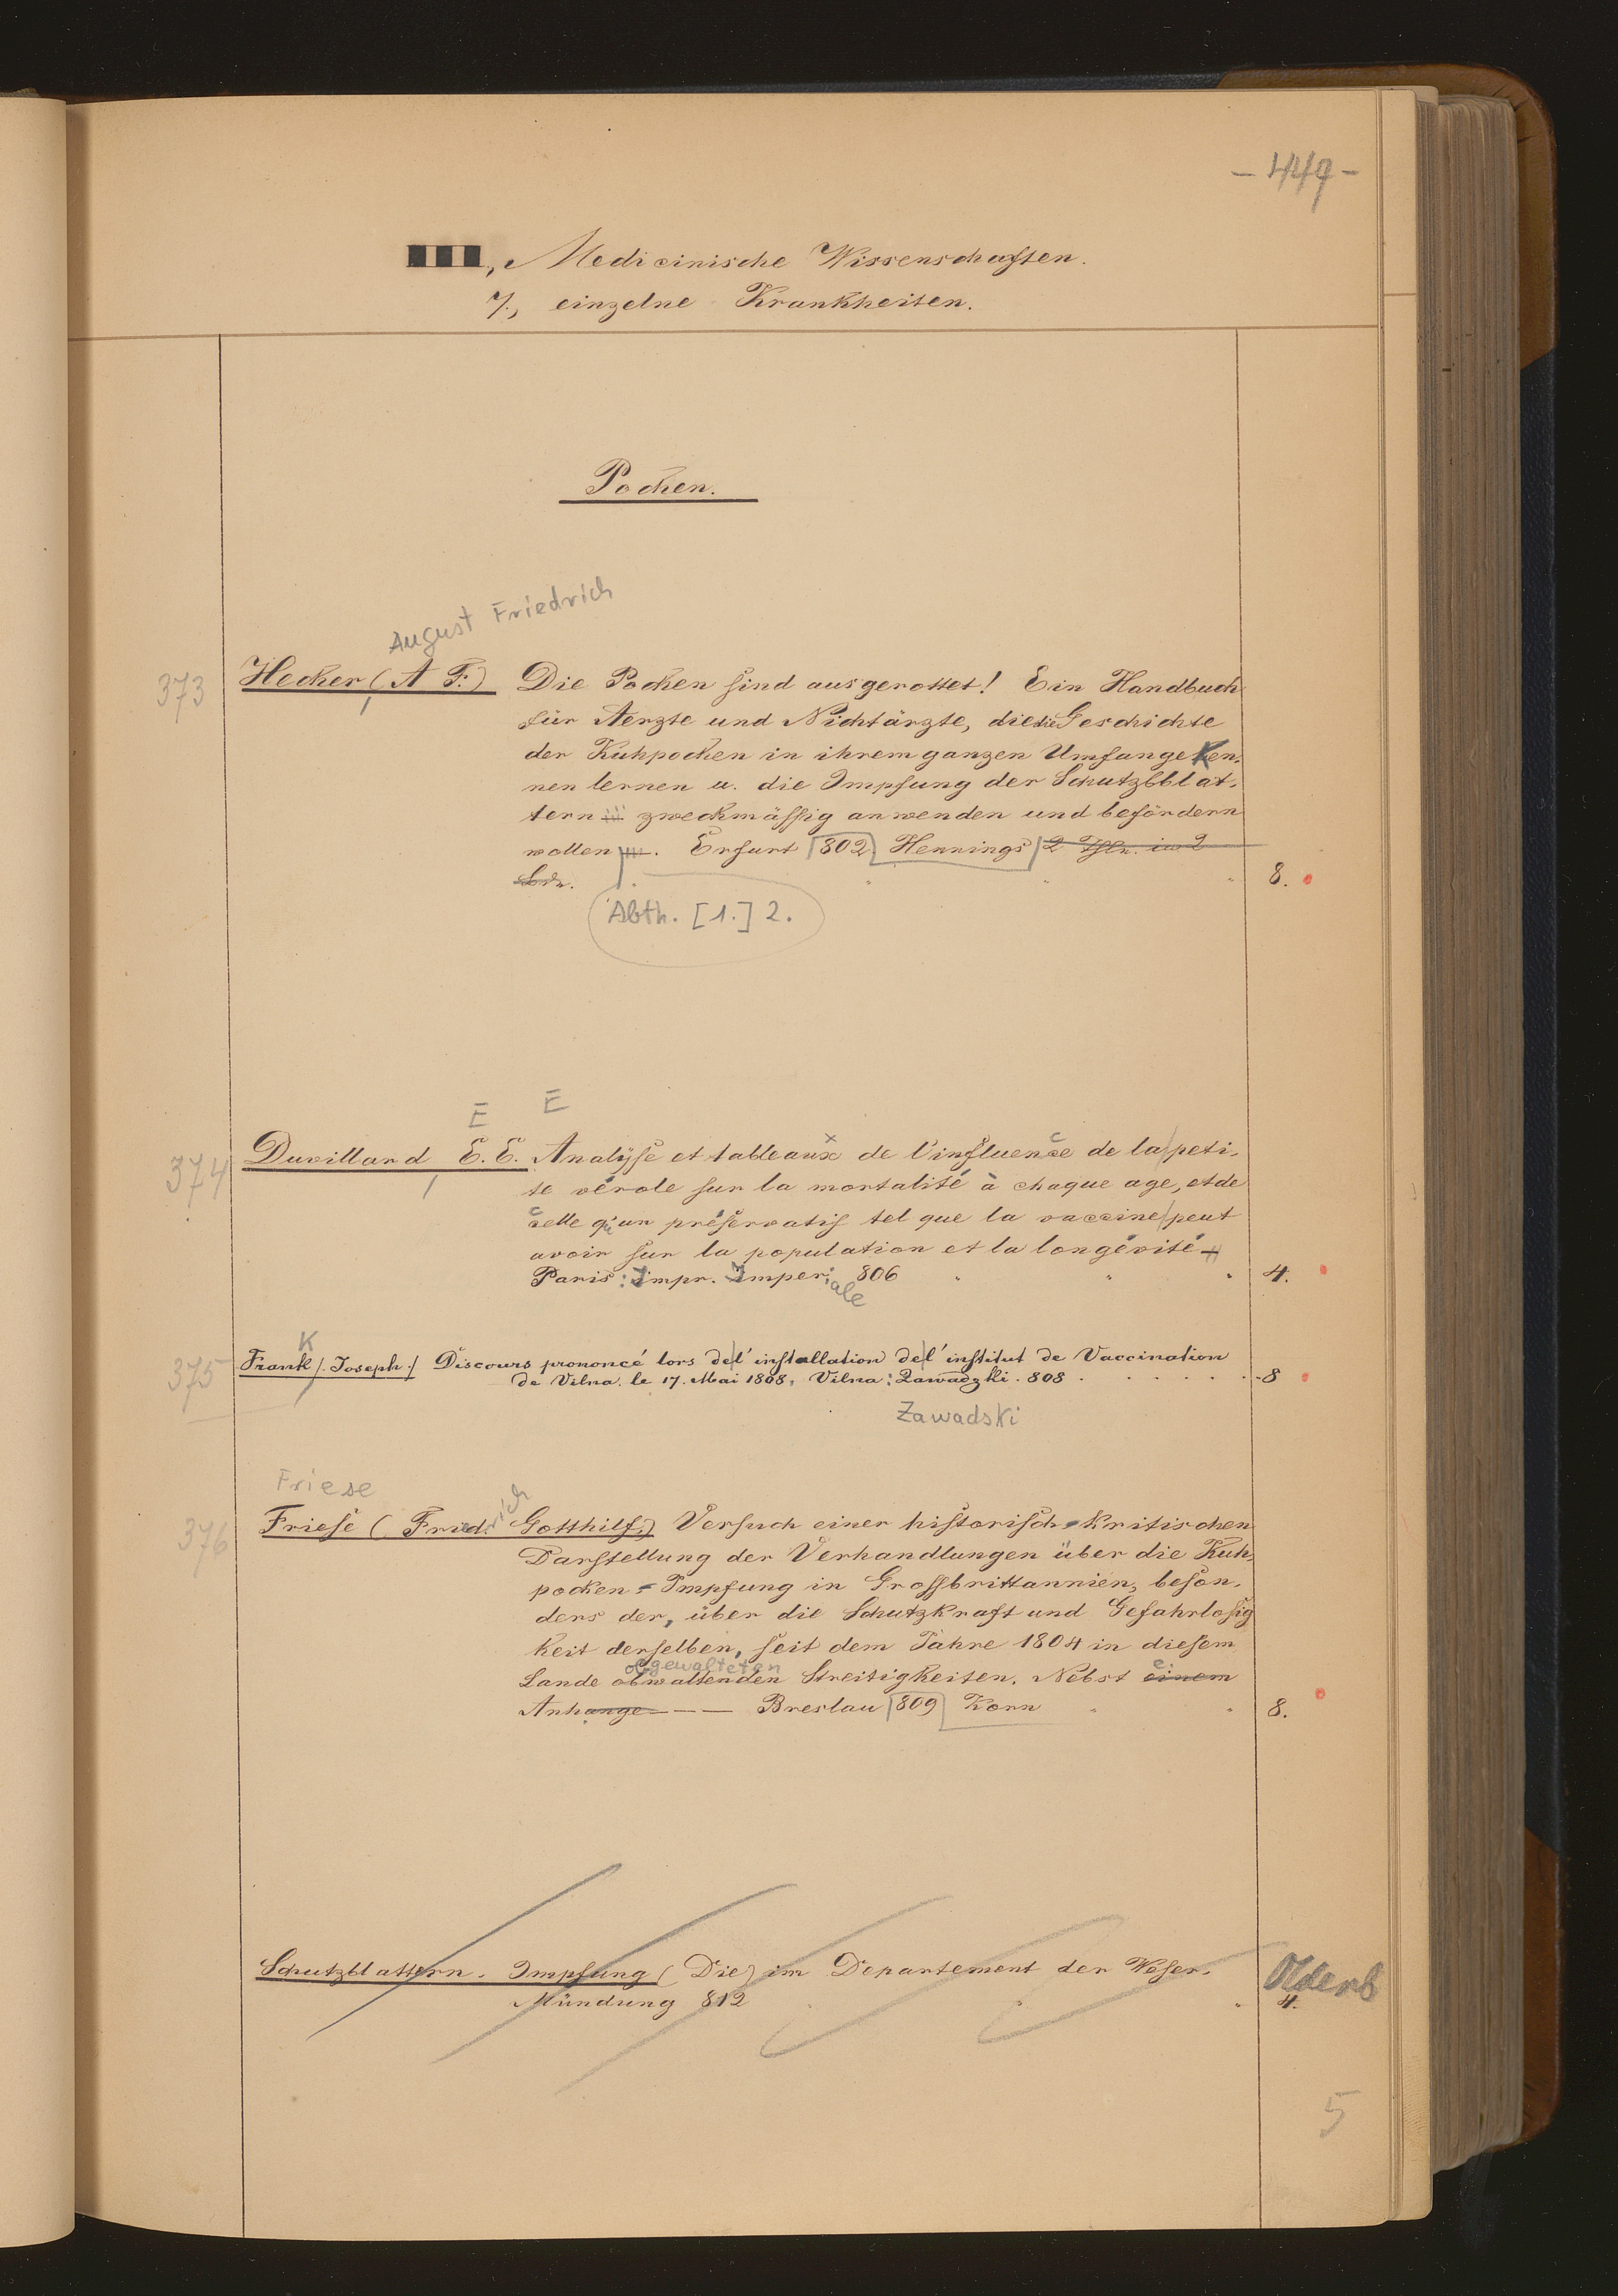 - 447 -
Medicinische Wissenschaften.
7., einzelne Krankheiten.
Pocken.
August Friedrich
373 Hecker (A F.) Die Pocken sind ausgerottet! Ein Handbuch
für Aerzte und Nichtärzte, die die Geschichte
der Kuhpocken in ihrem ganzen Umfange ken-
nen lernen u. die Impfung der Schutzbblat-
tern zweckmässig anwenden und befördern
wollen. Erfurt 802 Hennings 2 Thle. in 2
Bdn. 8.
Abth. [1.] 2.
E E
374 Duvillard E. E. Analÿse et tableaux de l'influence de la peti-
te vérole sur la mortalité à chaque age, et de
celle qu'un préservatif tel que la vaccine peut
avoir sur la population et la longévité
Paris: Impr. Imperiale 806 4.
K
375 Frank /. Joseph ./ Discours prononcé lors de l'installation de l'institut de Vaccination
de Vilna. le 17. Mai 1808, Vilna: Zawadzki. 808 . . . . . . . 8
Zawadski
Friese
376 Friese (Friedrich Gotthilf.) Versuch einer historisch-kritischen
Darstellung der Verhandlungen über die Kuh-
pocken-Impfung in Grossbrittannien, beson-
ders der, über die Schutzkraft und Gefahrlosig
keit derselben, seit dem Jahre 1804 in diesem
obgewalteten
Lande obwaltenden Streitigkeiten. Nebst einem
Anhange - - - Breslau 809 Korn 8.
Schutzblattern-Impfung (Die) im Departement der Weser- Oldenb
Mündung 812 4.
5